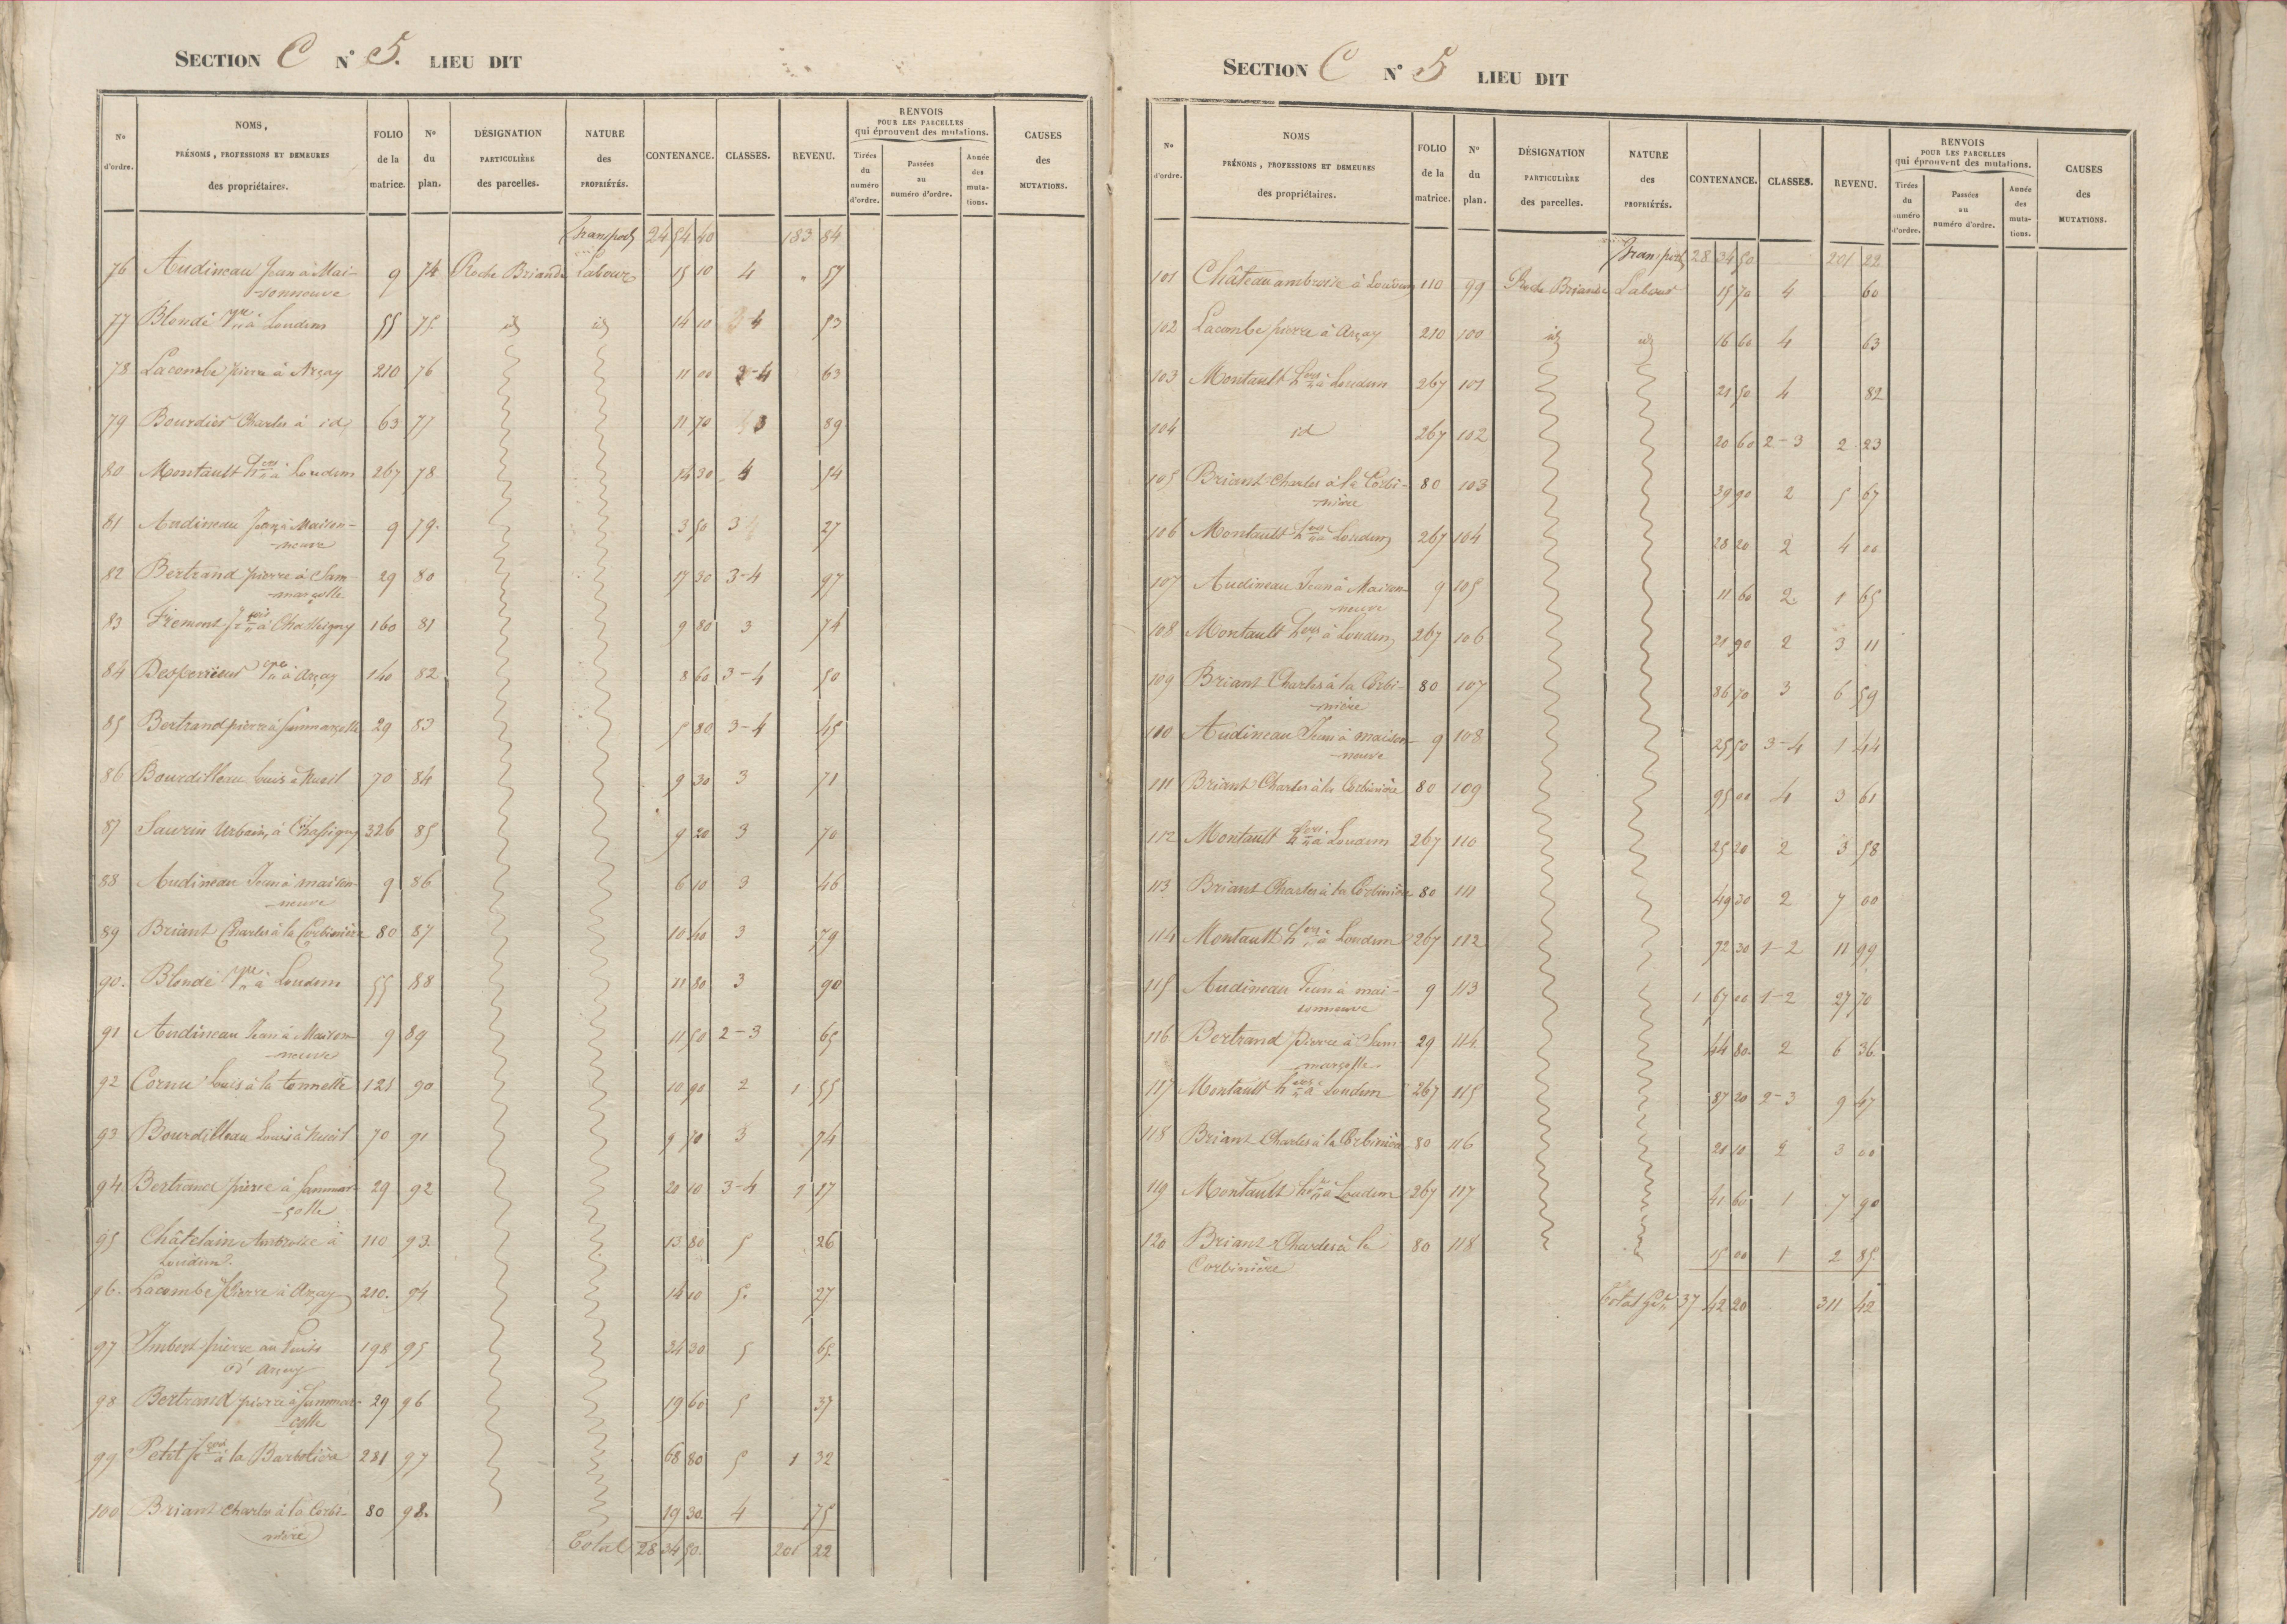 SECTION C N° 5. LIEU DIT
N° d'ordre. NOMS, PRÉNOMS, PROFESSIONS ET DEMEURES des propriétaires. FOLIO de la matrice. N° du plan. DÉSIGNATION PARTICULIÈRE des parcelles. NATURE des PROPRIÉTÉS. CONTENANCE. CLASSES. REVENU. RENVOIS POUR LES PARCELLES qui éprouvent des mutations. Tirées du numéro d'ordre. Passées au numéro d'ordre. Année des mutations. CAUSES des MUTATIONS.
Transport 24 54 40 183 84
76 Audineau Jean à Mai- 9 74 Roche Briande Labour 15 10 4 " 57
-sonneuve
77 Blondé à Loudun 55 75 id id 14 10 4 53
78 Lacombe pierre à Arçay 210 76 11 00 3-4 63
79 Bourdier Charles à id 63 77 11 70 3 89
80 Montault hers à Loudun 267 78 14 30 4 54
81 Audineau Jean à Maison- 9 79. 3 50 3 27
-neuve
82 Bertrand pierre à Sam- 29 80 17 30 3-4 97
-marçolle
83 Fremont fçois à Chassigny 160 81 9 80 3 74
84 Desperrieux à Arçay 140 82 8 60 3-4 50
85 Bertrand pierre à Sammarçolle 29 83 5 80 3-4 45
86 Bourdilleau Louis à Nueil 70 84 9 30 3 71
87 Saurin Urbain, à Chassigny 326 85 9 20 3 70
88 Audineau Jean à maison- 9 86 6 10 3 46
-neuve
89 Briant Charles à la Corbinière 80 87 10 40 3 79
90. Blondé à Loudun 55 88 11 80 3 90
91 Audineau Jean à Maison- 9 89 11 50 2-3 65
-neuve
92 Cornu Louis à la tonnelle 121 90 10 90 2 1 55
93 Bourdilleau Louis à Nueil 70 91 9 70 3 74
94 Bertrand pierre à Sammar- 29 92 20 10 3-4 1 17
-çolle
95 Châtelain Ambroise à 110 93. 13 80 5 26
Loudun.
96. Lacombe Pierre à Arçay 210. 94 14 10 5. 27
97 Imbert pierre au Puits 198 95 34 30 5 65
d'Arçay
98 Bertrand pierre à Sammar- 29 96 19 60 5 37
-çolle
99 Petit fçois à la Barbotière 281 97 68 80 5 1 32
100 Briant Charles à la Corbi- 80 98. 19 30. 4 75
nière
Total 28 34 50. 201 22
SECTION C N° 5 LIEU DIT
N° d'ordre. NOMS PRÉNOMS, PROFESSIONS ET DEMEURES des propriétaires. FOLIO de la matrice. N° du plan. DÉSIGNATION PARTICULIÈRE des parcelles. NATURE des PROPRIÉTÉS. CONTENANCE. CLASSES. REVENU. RENVOIS POUR LES PARCELLES qui éprouvent des mutations. Tirées du numéro d'ordre. Passées au numéro d'ordre. Année des mutations. CAUSES des MUTATIONS.
Transport 28 34 50 201 22
101 Château ambroise à Loudun 110 99 Roche Briande Labour 15 70 4 60
102 Lacombe pierre à Arçay 210 100 id id 16 60 4 63
103 Montault hers à Loudun 267 101 21 50 4 82
104 id 267 102 20 60 2-3 2 23
105 Briant Charles à la Corbi- 80 103 39 90 2 5 67
-nière
106 Montault hers à Loudun 267 104 28 20 2 4 00
107 Audineau Jean à Maison- 9 105 11 60 2. 1 65
-neuve
108 Montault hers à Loudun 267 106 21 90 2 3 11
109 Briant Charles à la Corbi- 80 107 86 70 3 6 59
-nière
110 Audineau Jean à maison- 9 108 25 50 3-4 1 44
-neuve
111 Briant Charles à la Corbinière 80 109 95 00 4 3 61
112 Montault hers à Loudun 267 110 25 20 2 3 58
113 Briant Charles à la Corbinière 80 111 49 30 2 7 00
114 Montault hers à Loudun 267 112 72 30 1-2 11 99
115 Audineau Jean à mai- 9 113 1 67 00 1-2 27 70
sonneuve
116 Bertrand pierre à Sam- 29 114 44 80. 2 6 36
-marçolle
117 Montault hers à Loudun 267 115 87 20 2-3 9 47
118 Briant Charles à la Corbinière 80 116 21 10 2 3 00
119 Montault hers à Loudun 267 117 41 60 1 7 90
120 Briant Charles à la 80 118 15 00 1 2 85
Corbinière
Total 37 42 20 311 42